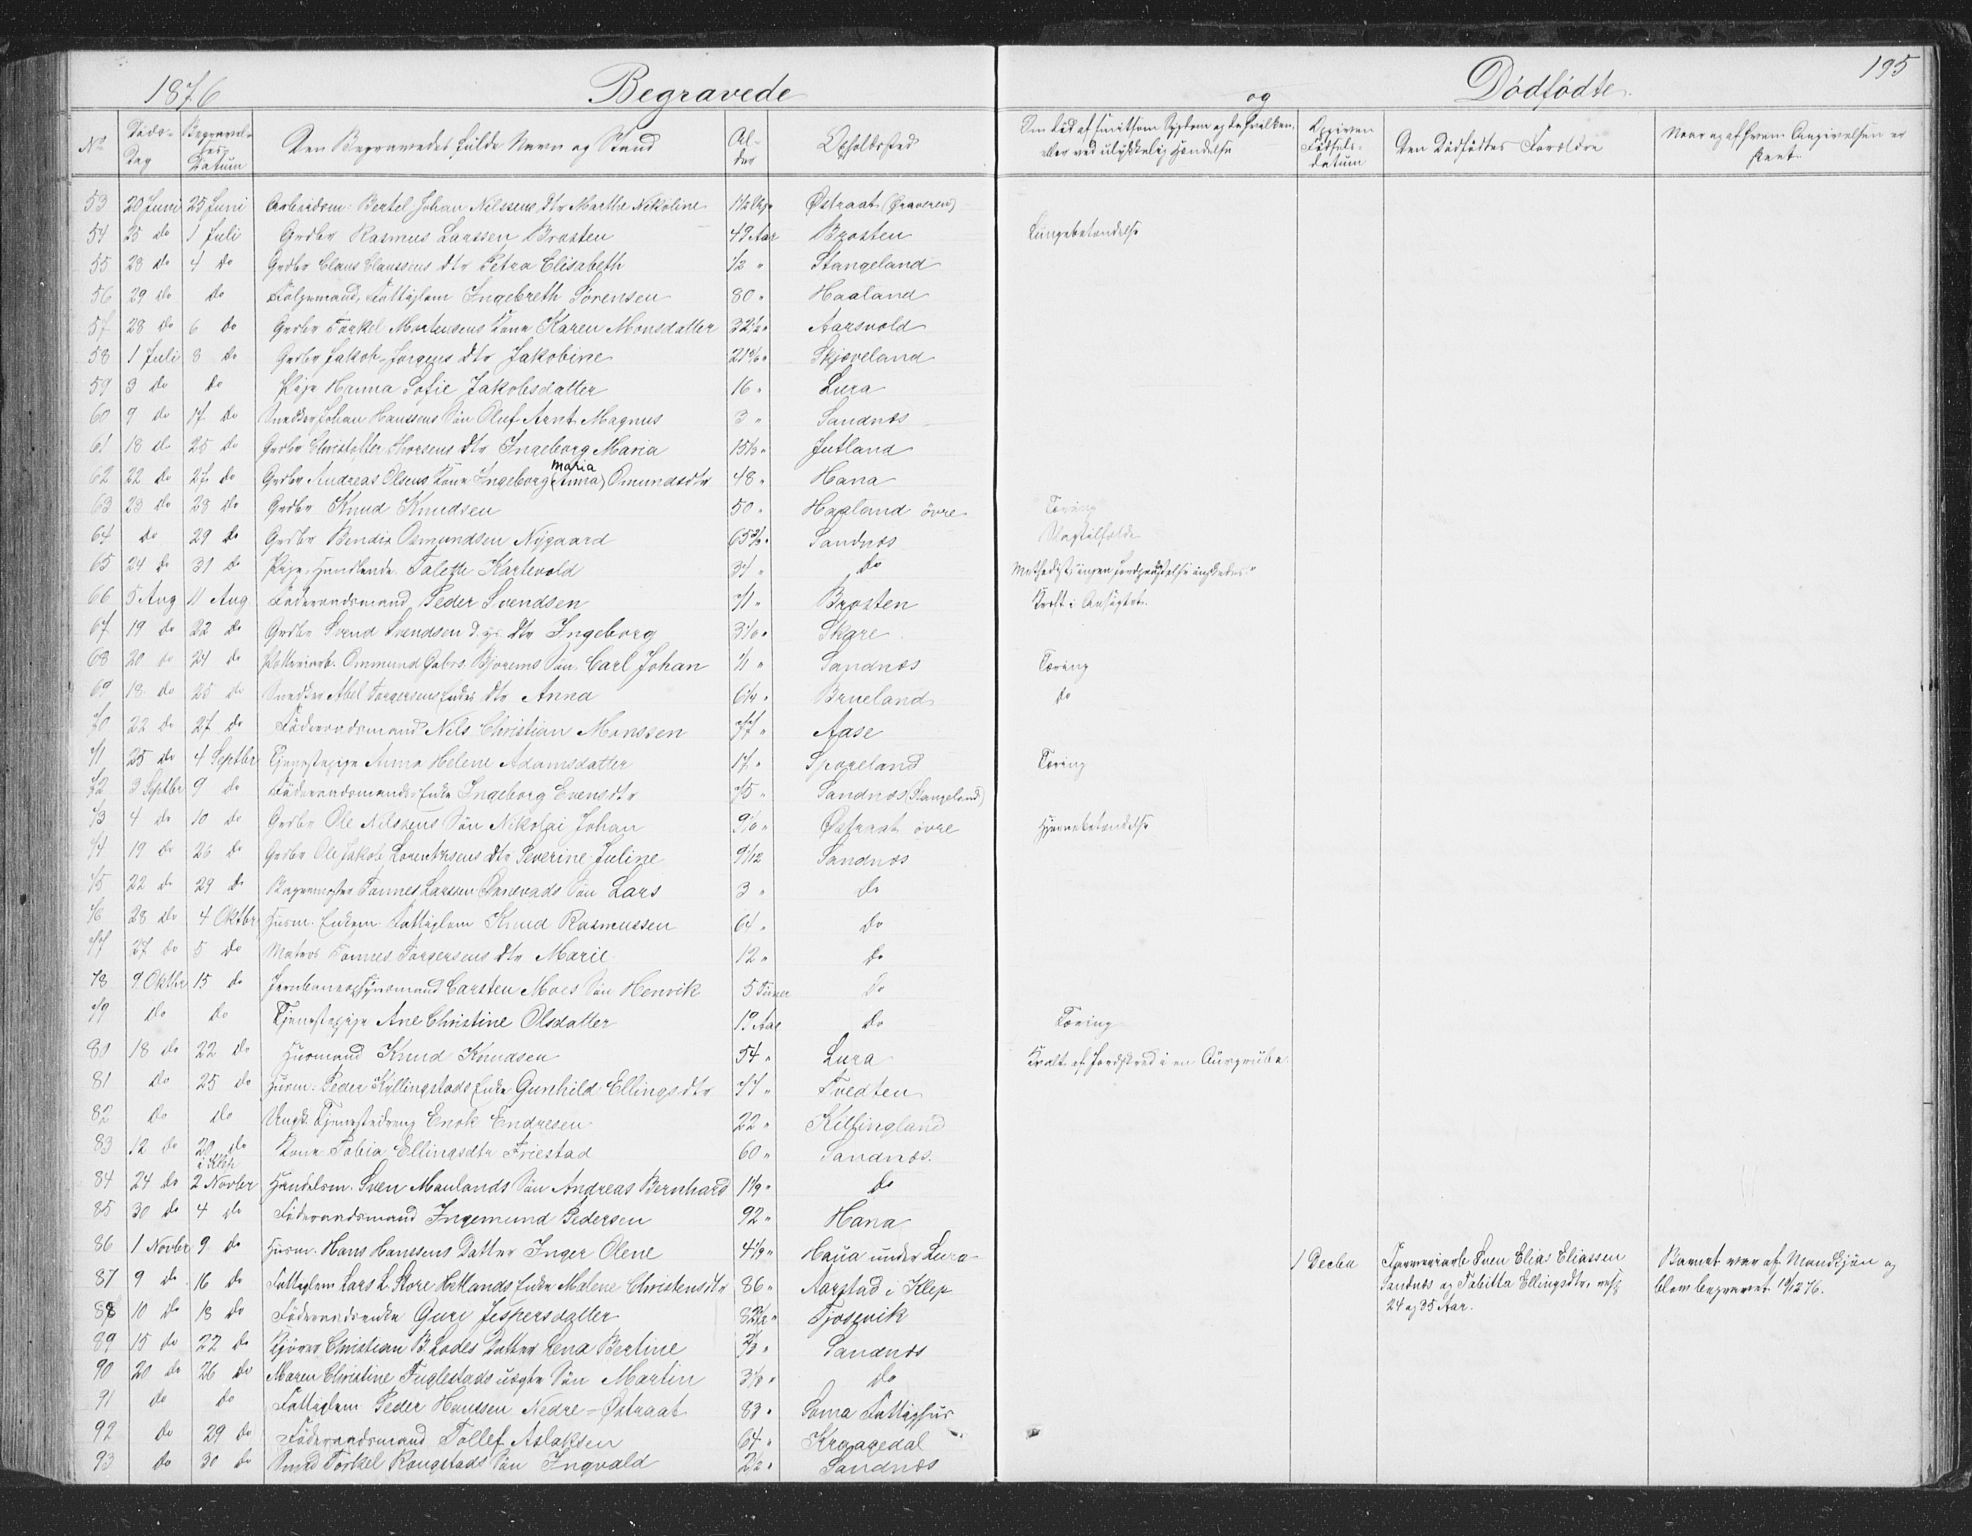 1876 Begravede og Dødfødte. 195
No Døds-Dag Begravel-ses-Datum Den Begravedes fulde Navn og Stand Al-der Opholdssted Om død af smitsom Sygdom og da hvilken, eller ved ulykkelig Hændelse Opgiven Fødsels-datum Den Dødfødtes Forældre Naar og af hvem Angivelsen er skeet.
53 20 Juni 25 Juni Arbeidsm. Bertel Johan Nilssens Dtr Marthe Nikoline Østraat (Graveren)
54 25 do 1 Juli Grdbr Rasmus Larssen Brosten 49 Aar Brosten Lungebetændelse
55 23 do 4 do Grdbr Claus Claussens Dtr Petra Elisabeth 1/2 " Stangeland
56 29 do do Fattiglem Ingebreth Sørensen 80 " Haaland
57 28 do 6 do Grdbr Torkel Mortensens Kone Karen Monsdatter 32 1/2 " Aarsvold
58 1 Juli 8 do Grdbr Jakob Jørgens Dtr Jakobine Skjæveland
59 3 do do Pige Hanna Sofie Jakobsdatter 16 " Lura
60 9 do 17 do Snedker Johan Hanssens Søn Oluf Arnt Magnus 3 " Sandnæs
61 18 do 25 do Grdbr Christoffer Dtr Ingeborg Maria Jutland
62 22 do 27 do Grdbr Andreas Olsens Kone Ingeborg (Anna) Maria Omundsdtr 48 " Hana
63 23 do 28 do Grdbr Knud Knudsen 50 " Haaland øvre Tæring
64 do 29 do Grdbr Bendix Osmundsen Nygaard Sandnæs Slagtilfælde
65 24 do 31 do Pige, Handlende Talette Kartevold 34 " do Methodist, ingen Jordpaakastelse
66 5 Aug 11 Aug Føderaadsmand Peder Svendsen 71 " Brosten Kræft i Ansigtet.
67 19 do 22 do Grdbr Svend Svendsen d. y.s Dtr Ingeborg Skare
68 20 do 24 do Potteriarb. Ommund Gabrs. Bjorems Søn Carl Johan Sandnæs Tæring
69 18 do 25 do Snedker Abel Torgersens Enkes Dtr Anna 6 1/4 " Brueland do
70 22 do 27 do Føderaadsmand Nils Christian Monssen 77 " Aase
71 25 do 4 Septbr Tjenestepige Anna Helene Adamsdatter 17 " Sporeland Tæring
72 3 Septbr 9 do Føderaadsmands Enke Ingeborg Evensdtr 75 " Sandnæs (Stangeland)
73 4 do 10 do Grdbr Ole Nilssens Søn Nikolai Johan Østraat øvre Hjernebetændelse
74 19 do 26 do Grdbr Ole Jakob Lorentzsens Dtr Severine Juline Sandnæs
75 22 do 29 do Bagermester Tønnes Larssen Søn Lars 3 " do
76 28 do 4 Oktbr Husm. Enkem. Fattiglem Knud Rasmussen 64 " do
77 27 do 5 do Matros Tønnes Torgersens Dtr Marie 12 " do
78 9 Oktbr 15 do Jernbaneopsynsmand Carsten Moes Søn Henrik 5 Timer do
79 do do Tjenestepige Ane Christine Olsdatter 19 Aar do Tæring
80 18 do 22 do Husmand Knud Knudsen 54 " Lura Kvalt af Jordskred i en Aurgrube
81 do 25 do Husm. Peder Kyllingstads Enke Gunhild Ellingsdtr 77 " Tvedten
82 do do Ungk. Tjenestedreng Enok Endresen 22 " Kilfingland
83 12 do 20 do i Klep Kone Tobia Ellingsdtr Friestad 60 " Sandnæs.
84 24 do 2 Novbr Handelsm. Sven Maulands Søn Andreas Bernhard do
85 30 do 4 do Føderaadsmand Ingemund Pedersen 92 " Hana
86 1 Novbr 9 do Husm. Hans Hanssens Datter Inger Olene under Lura
1 Decbr Sven Elias Eliassen Sandnæs og Tabitta Ellingsdtr, resp. 24 og 35 Aar. Barnet var af Mandkjøn og blev begravet 10/12 76.
87 9 do 16 do Fattiglem Lars L. Store Hetlands Enke Malene Christensdtr 86 " Aarstad i Klep
88 10 do 18 do Føderaadsenke Guri Jespersdatter Tjosevik
89 15 do 22 do Kjører Christian B. Lodes Datter Lena Bertine Sandnæs
90 20 do 26 do Maren Christine Fuglestads uægte Søn Martin do
91 do do Fattiglem Peder Hanssen Nedre-Østraat 83 " Soma Fattighus
92 do 29 do Føderaadsmand Tollef Aslaksen 64 " Kraagedal
93 do 30 do Smed Torkel Rougstads Søn Ingvald 2 1/2 " Sandnæs